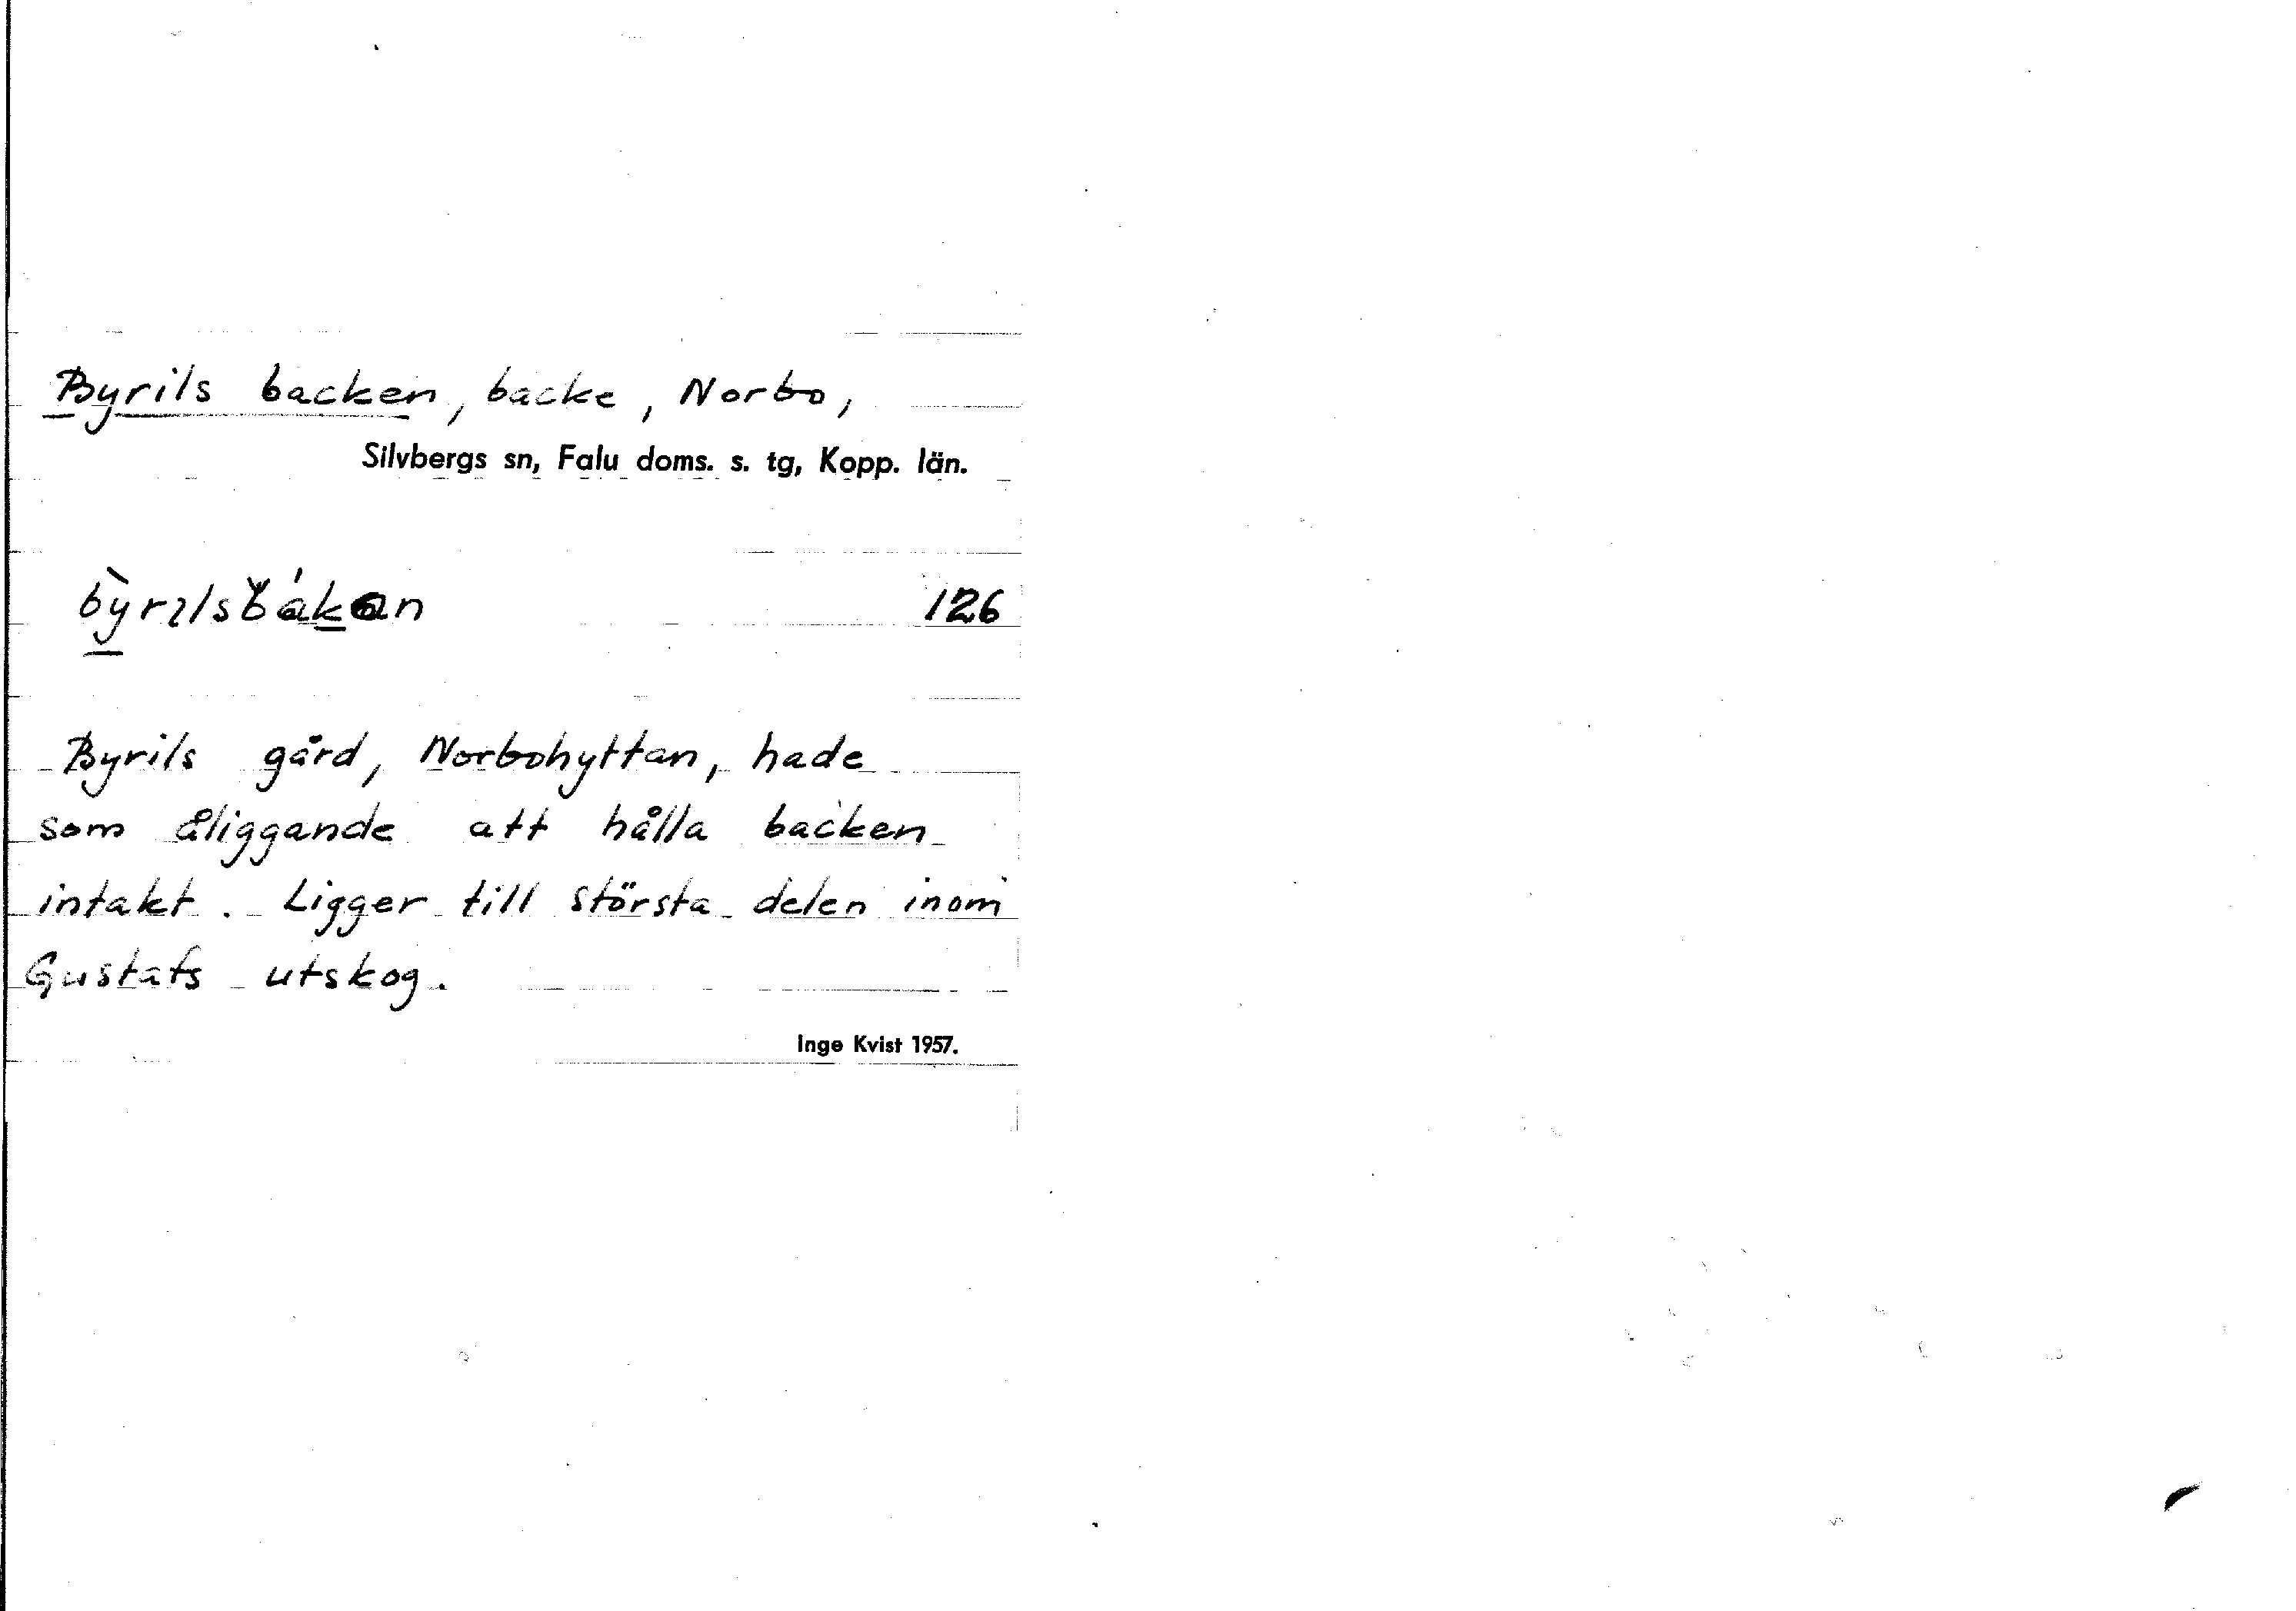 Byrils backen, backe, Norbo,
Silvbergs sn, Falu doms. s. tg, Kopp. län.
126
Byrils gård, Norbohyttan, hade
som åliggande att hålla backen
intakt. Ligger till största delen inom
Gustafs utskog.
Inge Kvist 1957.